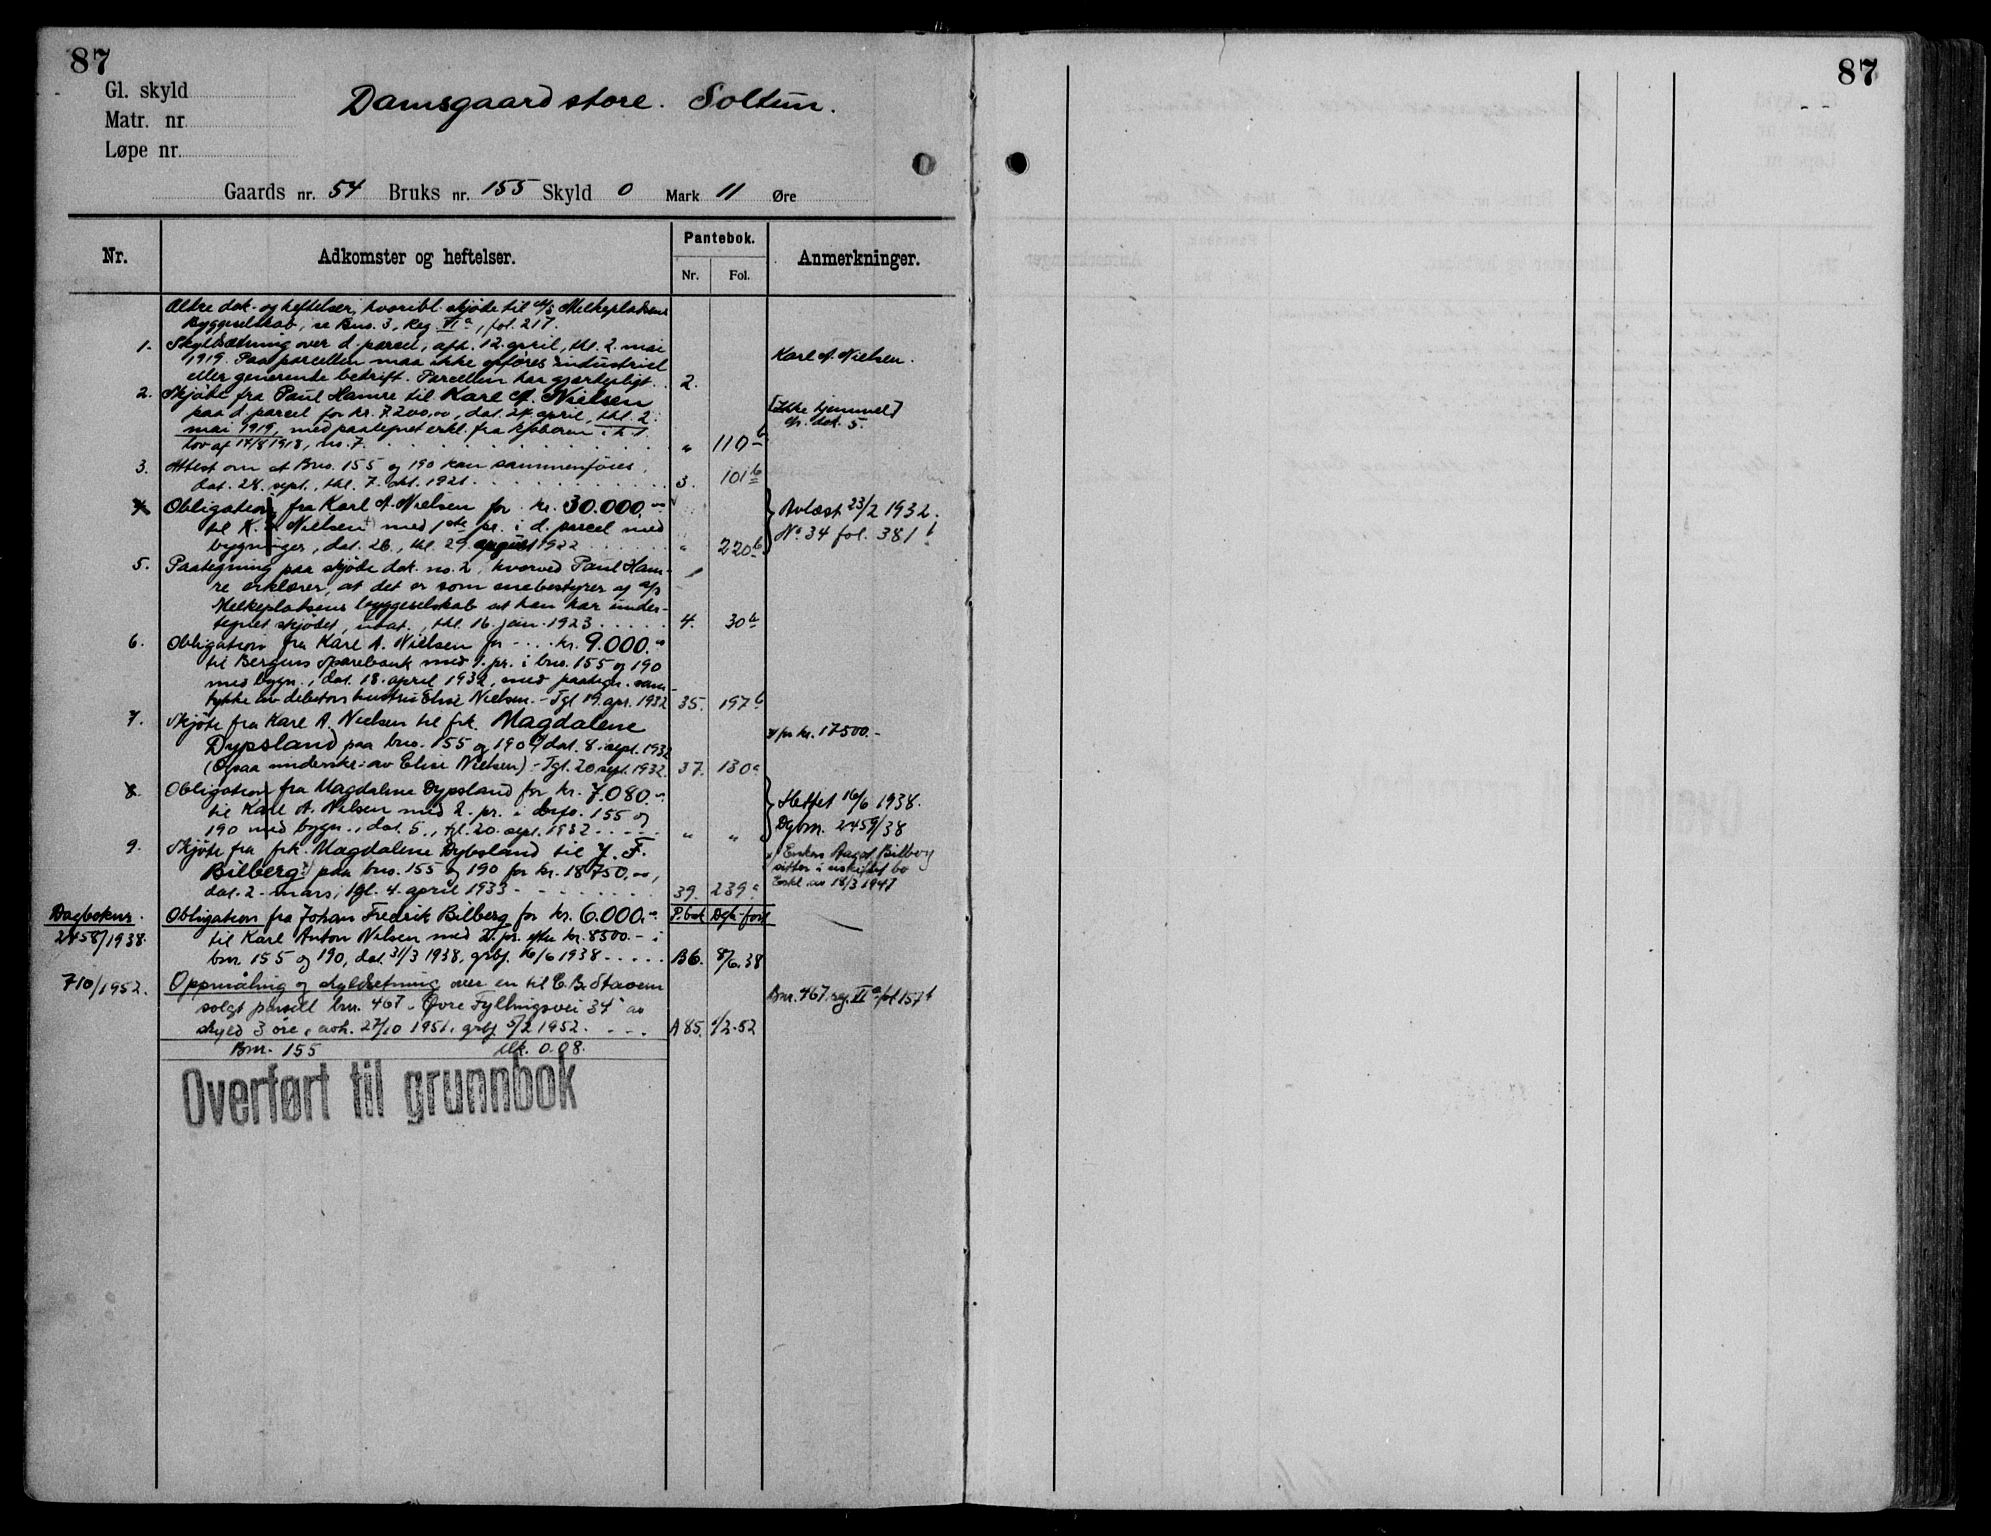 87
87
Gl. skyld
Matr. nr
Løpe nr.
Damsgaard store. Soltun.
Gaards nr. 54 Bruks nr. 155 Skyld 0 Mark 11 Øre
Nr. Adkomster og heftelser. Pantebok. Nr. Fol. Anmerkninger.
Ældre dok. og heftelser, hvoribl. skjøde til A/S Melkepladsens
Byggeselskab, se Bno. 3, Reg. VI a, fol. 217.
1. Skyldsætning over d. parcel, afh. 12. april, thl. 2. mai
1919. Paa parcellen maa ikke opføres industriel
eller generende bedrift. Parcellen har gjærdepligt. 2.
Karl A. Nielsen.
2. Skjøde fra Paul Hamre til Karl A. Nielsen
paa d. parcel for kr. 7.200,00, dat. 24. april, thl. 2.
mai 1919, med paategnet erkl. fra kjøberen i h. t.
lov af 14/8 1918, no. 7. " 110 b
[Ikke hjemmel]
cfr. dok. 5.
3. Attest om at Bno. 155 og 190 kan sammenføies,
dat. 28. sept., thl. 7. okt. 1921. 3. 101 b
4. Obligation fra Karl A. Nielsen for kr. 30.000,00
til K. Nielsen med 1ste pr. i d. parcel med
bygninger, dat. 26., thl. 29. august 1922 " 220 b
Avlæst 23/2 1932.
No 34 fol. 381 b
5. Paategning paa skjøde dok. no. 2, hvorved Paul Ham-
re erklærer, at det er som enebestyrer af A/S
Melkepladsens byggeselskab at han har under-
tegnet skjødet, udat., thl. 16. jan. 1923 4. 30 b
6. Obligation fra Karl A. Nielsen for kr. 9.000.00
til Bergens sparebank med 1. pr. i bno. 155 og 190
med bygn., dat. 18. april 1932, med paategn. sam-
tykke av debitors hustru Elise Nielsen. - Tgl 19. apr. 1932 35. 197 b
7. Skjøte fra Karl A. Nielsen til frk. Magdalene
Dypsland paa bno. 155 og 190 dat. 8. sept. 1932
(Ogsaa underskr. av Elise Nielsen) - Tgl. 20. sept. 1932. 37. 130 a
for kr. 17500.-
8. Obligation fra Magdalene Dypsland for kr. 7.080.00
til Karl A. Nilsen med 2. pr. i bno. 155 og
190 med bygn., dat. 5., tgl. 20. sept. 1932 " "
Slettet 16/6 1938.
Dgbnr. 2459/38
9. Skjøte fra frk. Magdalene Dybsland til J. F.
Bilberg paa bno. 155 og 190 for kr. 18750,00,
dat. 2. mars, tgl. 4. april 1933 39. 239 a
Enken Aagot Bilberg
sitter i uskiftet bo
Erkl. av 18/3 1947
Dagboknr.
2458/1938.
Obligation fra Johan Fredrik Bilberg for kr. 6.000.00 P.bok Dgb.-ført
til Karl Anton Nilsen med 2. pr. efter kr. 8500.- i
bnr 155 og 190, dat. 31/3 1938, grbf. 16/6 1938 B6. 8/6.38
710/1952. Oppmåling og skyldsetning over en til C. B. Stavem
solgt parsell bnr. 467 "Øvre Fyllingsvei 34" av
skyld 3 øre, avh. 27/10 1951, grbf. 5/2 1952. A 85 1/2-52
Bnr. 467. reg. VI a fol 157 b
Bnr. 155 Mk. 0.08.
Overført til grunnbok